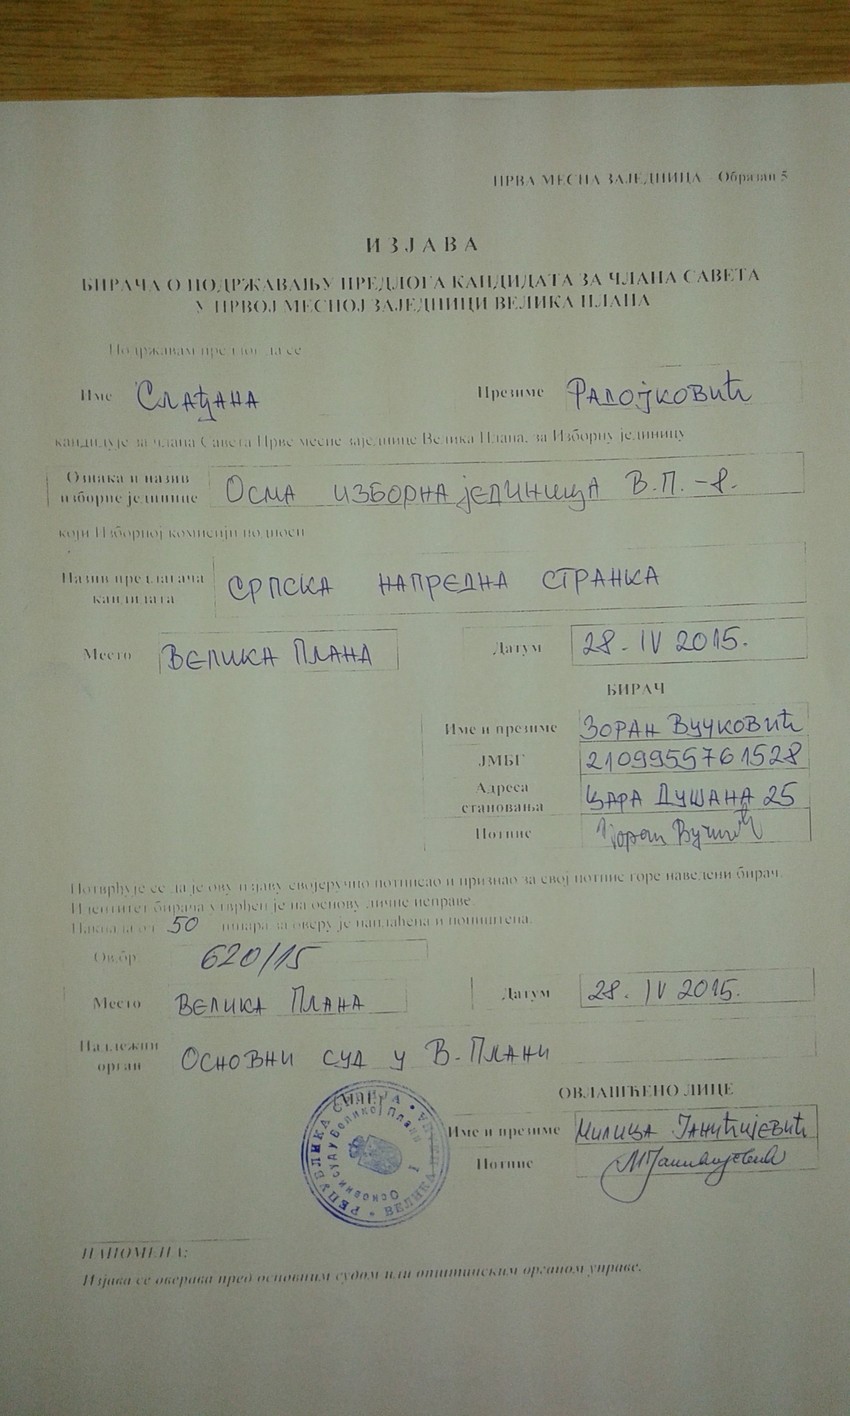 ПРВА МЕСНА ЗАЈЕДНИЦА – Образац 5
ИЗЈАВА
БИРАЧА О ПОДРЖАВАЊУ ПРЕДЛОГА КАНДИДАТА ЗА ЧЛАНА САВЕТА
У ПРВОЈ МЕСНОЈ ЗАЈЕДНИЦИ ВЕЛИКА ПЛАНА
Подржавам предлог да се
Име Слађана Презиме Радојковић
кандидује за члана Савета Прве месне заједнице Велика Плана, за Изборну јединицу
Ознака и назив
изборне јединице Осма изборна јединица В.П. -8.
који Изборној комисији подноси
Назив предлагача
кандидата СРПСКА НАПРЕДНА СТРАНКА
Место ВЕЛИКА ПЛАНА Датум 28. IV 2015.
БИРАЧ
Име и презиме Зоран Вучковић
ЈМБГ 2109955761528
Адреса
становања Цара Душана 25
Потпис
Потврђује се да је ову изјаву својеручно потписао и признао за свој потпис горе наведени бирач.
Идентитет бирача утврђен је на основу личне исправе.
Накнада од 50 динара за оверу је наплаћена и поништена.
Ов.бр. 620/15
Место ВЕЛИКА ПЛАНА Датум 28. IV 2015.
Надлежни
орган Основни суд у В. Плани
ОВЛАШЋЕНО ЛИЦЕ
Име и презиме Милица Јанићијевић
Потпис
РЕПУБЛИКА СРБИЈА
Основни суд у Великој Плани
ВЕЛИКА ПЛАНА
НАПОМЕНА:
Изјава се оверава пред основним судом или општинским органом управе.